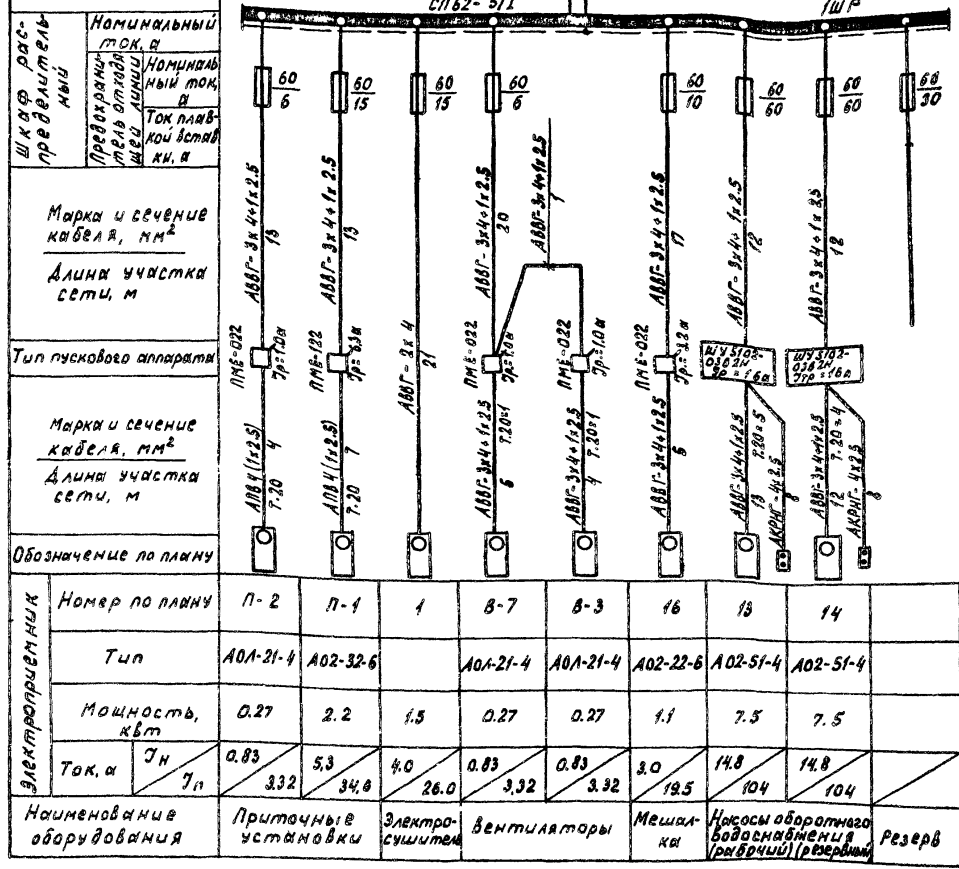 СПБ2-5/1
1ШР
Шкаф рас-
пределитель-
ный
Номинальный
ток, а
Предохрани-
тель отходя
щей линии
Номиналь
ный ток,
а
Ток плав-
кой встав
ки, а
60/6
60/15
60/15
60/6
60/10
60/60
60/60
60/30
Марка и сечение
кабеля, мм²
Длина участка
сети, м
АВВГ-3х4+1х2.5
13
АВВГ-3х4+1х2.5
13
АВВГ-2х4
21
АВВГ-3х4+1х2.5
20
АВВГ-3х4+1х2.5
1
АВВГ-3х4+1х2.5
17
АВВГ-3х4+1х2.5
12
АВВГ-3х4+1х2.5
12
Тип пускового аппарата
ПМЕ-022
Iр=1.0а
ПМЕ-122
Iр=6.3а
ПМЕ-022
Iр=1.0а
ПМЕ-022
Iр=1.0а
ПМЕ-022
Iр=3.2а
ШУ5102-
03В2Н
Iтр=16а
ШУ5102-
03В2Н
Iтр=16а
Марка и сечение
кабеля, мм²
Длина участка
сети, м
АПВ4(1х2.5)
Т.20
4
АПВ4(1х2.5)
Т.20
7
АВВГ-3х4+1х2.5
6
Т.20=1
АВВГ-3х4+1х2.5
4
Т.20=1
АВВГ-3х4+1х2.5
6
АВВГ-3х4+1х2.5
13
Т.20=5
АКРНГ-4х2.5
8
АВВГ-3х4+1х2.5
12
Т.20=4
АКРНГ-4х2.5
8
Обозначение по плану
Электроприемник
Номер по плану П-2 П-1 1 В-7 В-3 16 13 14
Тип АОЛ-21-4 АО2-32-6 АОЛ-21-4 АОЛ-21-4 АО2-22-6 АО2-51-4 АО2-51-4
Мощность,
квт 0.27 2.2 1.5 0.27 0.27 1.1 7.5 7.5
Ток, а Iн 0.83 5,3 4.0 0.83 0.83 3.0 14.8 14,8
Iп 3.32 34,6 26.0 3,32 3.32 19.5 104 104
Наименование
оборудования
Приточные
установки
Электро-
сушитель
Вентиляторы
Мешал-
ка
Насосы оборотного
водоснабжения
(рабочий) (резервный
Резерв